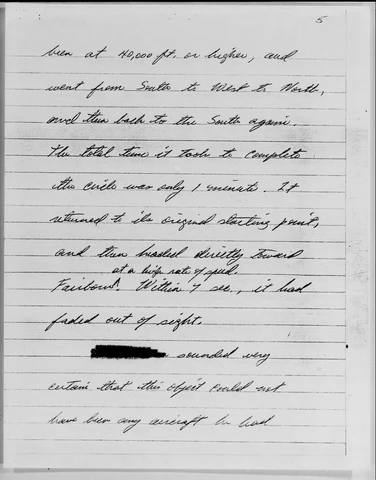 5
been at 40,000 ft. or higher, and
went from South to West to North,
and then back to the South again.
The total time it took to complete
the circle was only 1 minute. It
returned to its original starting point,
and then headed directly toward
at a high rate of speed.
Fairborn. Within 7 sec., it had
faded out of sight.
sounded very
certain that this object could not
have been any aircraft he had